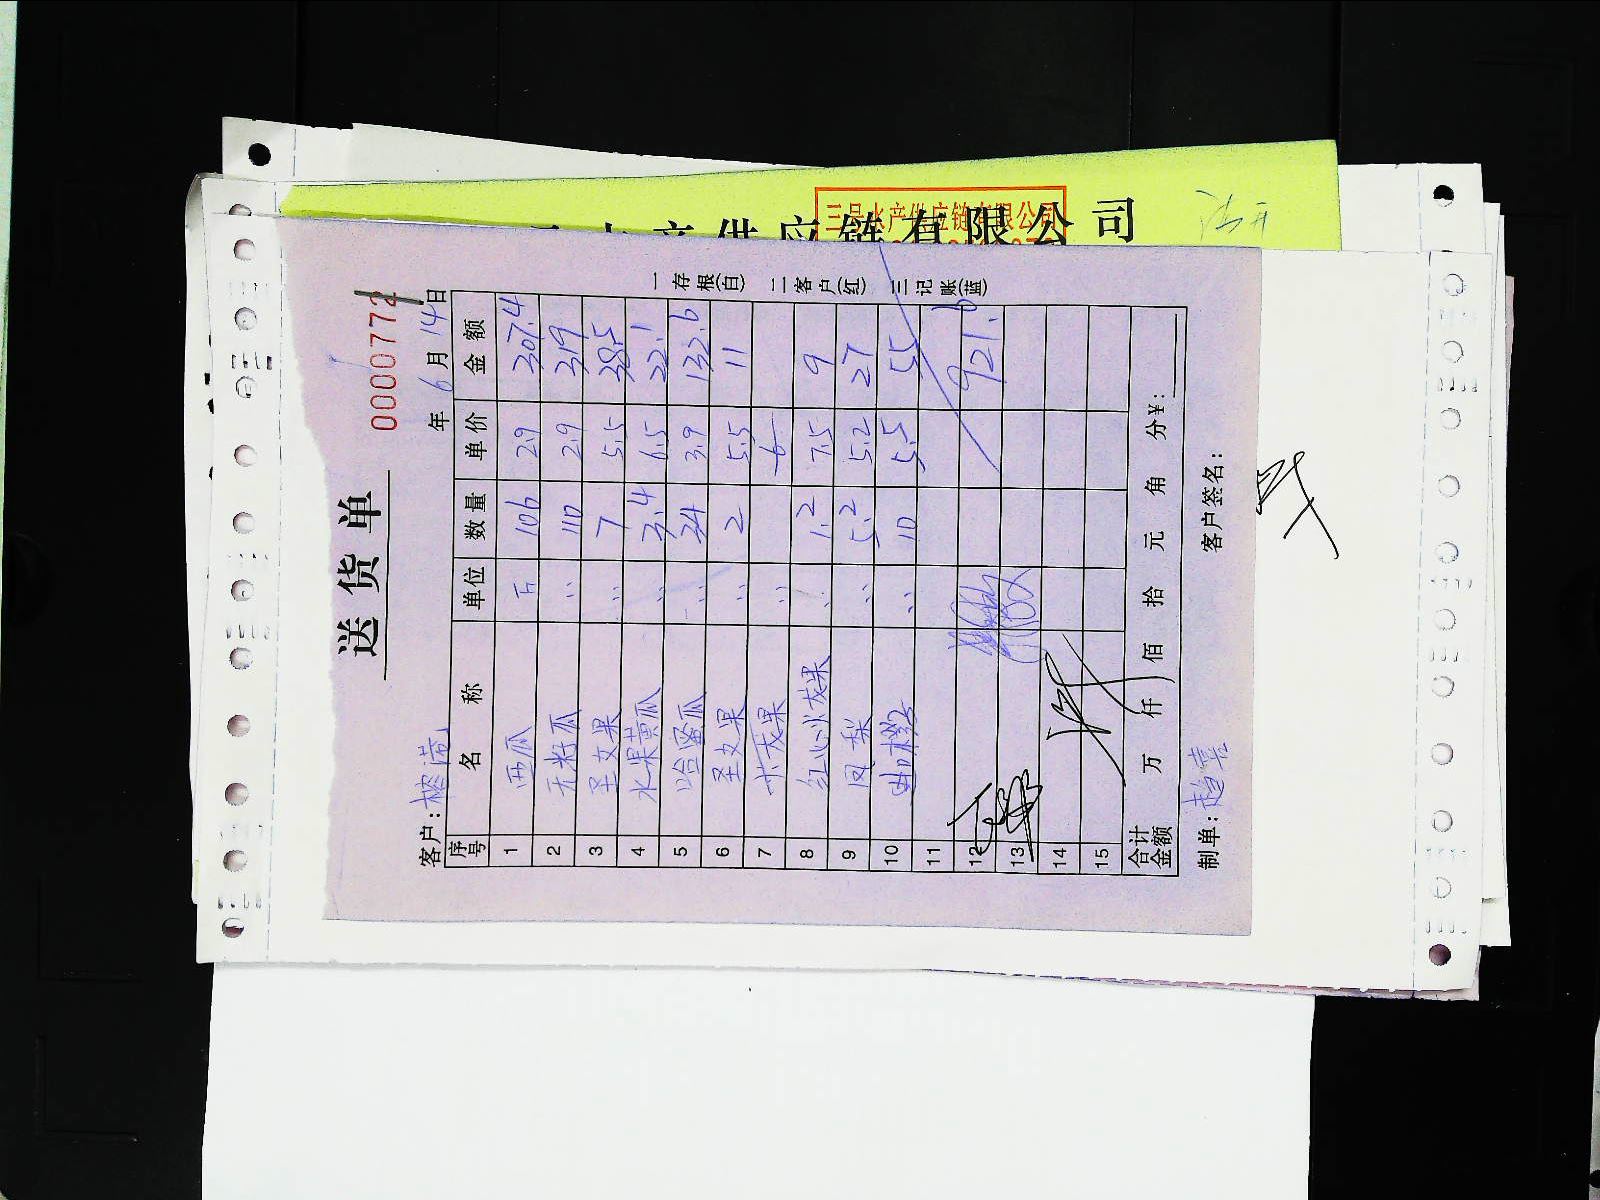 三号水产供应链有限公司
水产供应链有限公司
送货单
0000772
客户: 年 6 月 14 日
序号 名称 单位 数量 单价 金额
1 西瓜 斤 106 2.9 307.4
2 无籽瓜 〃 110 2.9 319
3 圣女果 〃 7 5.5 38.5
4 水果黄瓜 〃 3.4 6.5 22.1
5 哈蜜瓜 〃 34 3.9 132.6
6 圣女果 〃 2 5.5 11
7 火龙果 〃 6
8 红心火龙果 〃 1.2 7.5 9
9 凤梨 〃 5.2 5.2 27
10 〃 10 5.5 55
11
12 921.6
13
14
15
合计金额 万 仟 佰 拾 元 角 分 ¥:
制单: 客户签名:
一存根(白) 二客户(红) 三记账(蓝)